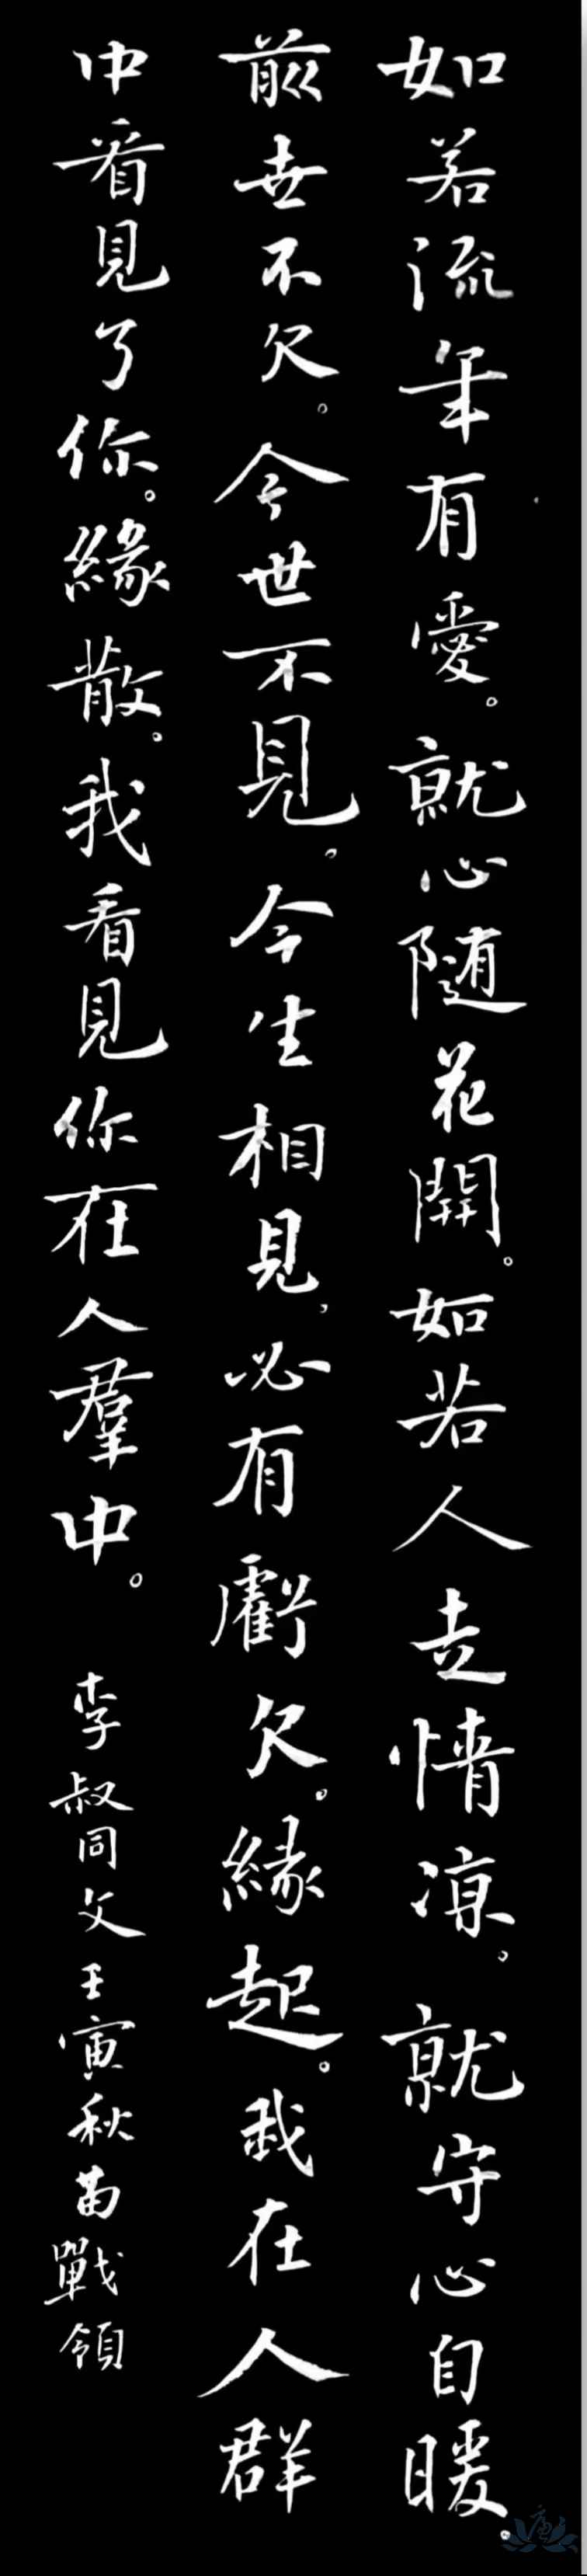 如若流年有愛。就心隨花開。如若人走情凉。就守心自暖。
前世不欠。今世不見。今生相見，必有虧欠。緣起。我在人群
中看見了你。緣散。我看見你在人羣中。
李叔同文壬寅秋苗戰領